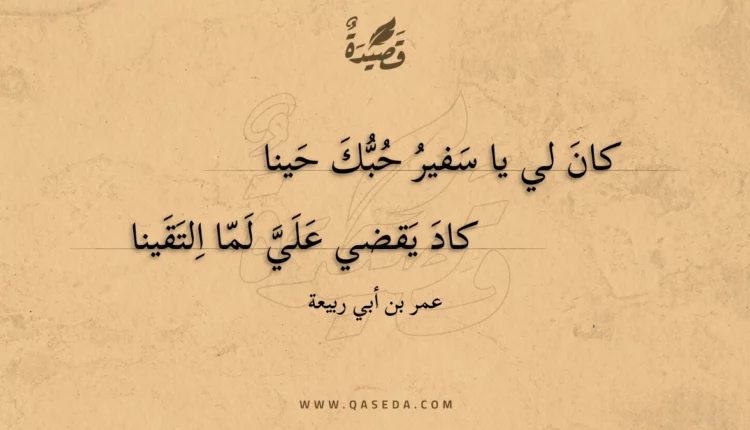 قَصِيدَةٌ
كانَ لي يا سَفيرُ حُبُّكَ حَينا
كادَ يَقضي عَلَيَّ لَمّا اِلتَقَينا
عمر بن أبي ربيعة
WWW.QASEDA.COM